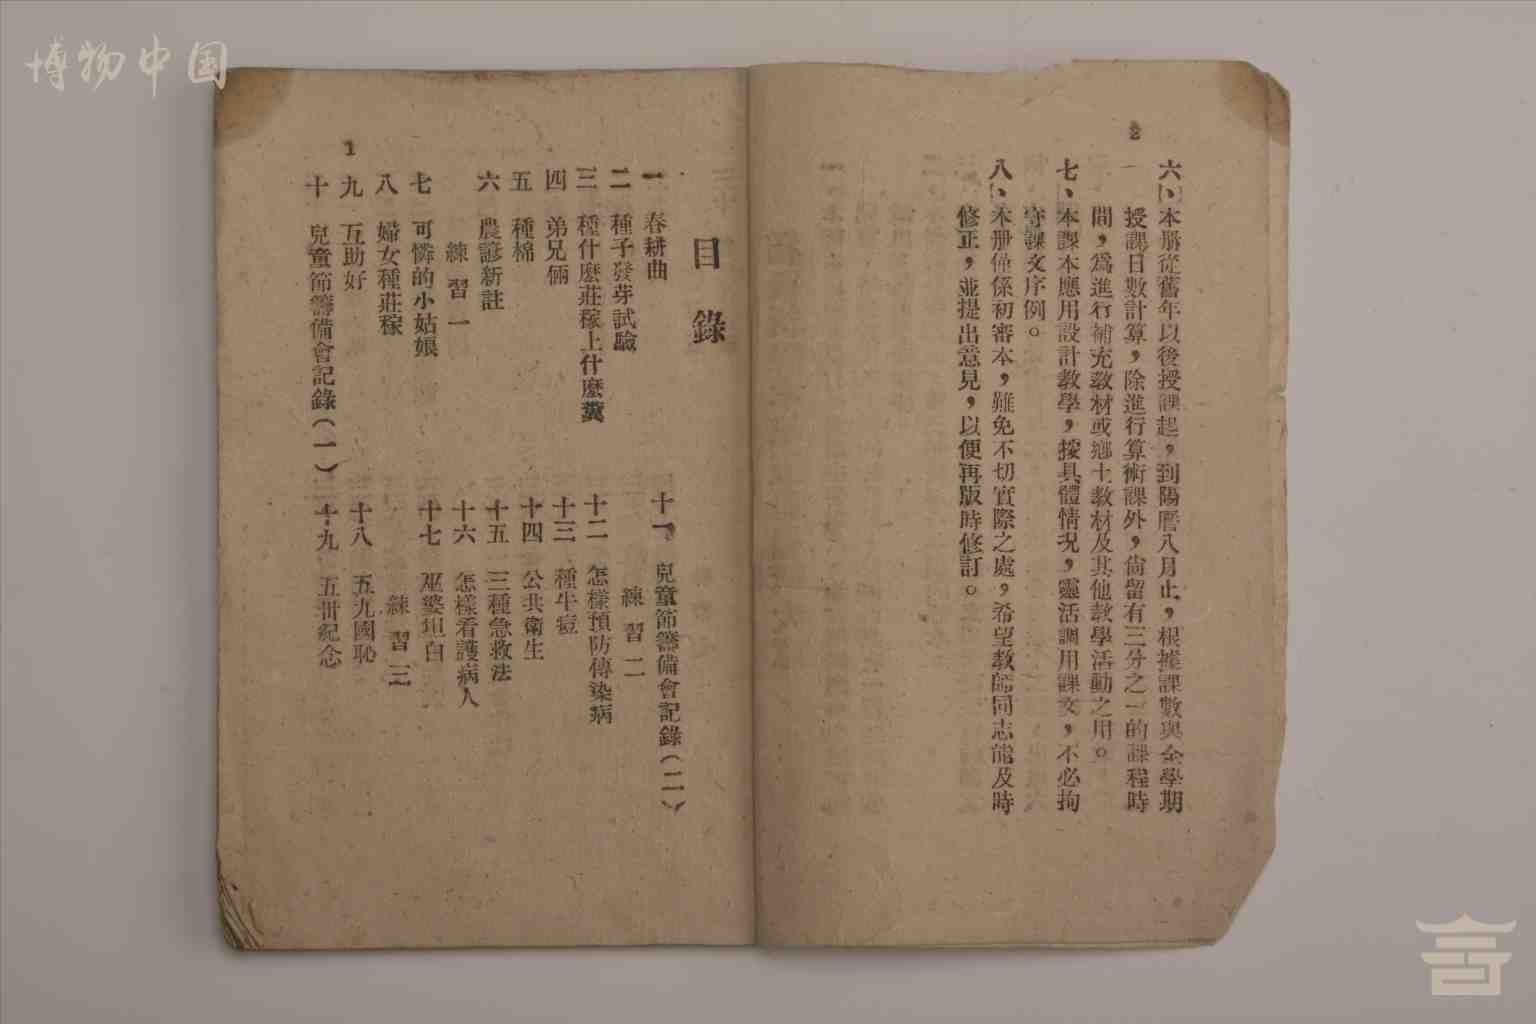 博物中国
2
六、本册從舊年以後授課起，到陽曆八月止，根據課數與全學期
授課日數計算，除進行算術課外，尚留有三分之一的課程時
間，爲進行補充敎材或鄉土敎材及其他敎學活動之用。
七、本課本應用設計敎學，按具體情况，靈活調用課文，不必拘
守課文序例。
八、本册僅係初審本，難免不切實際之處，希望敎師同志能及時
修正，並提出意見，以便再版時修訂。
目錄
一 春耕曲
二 種子發芽試驗
三 種什麽莊稼上什麽糞
四 弟兄倆
五 種棉
六 農諺新註
練習一
七 可憐的小姑娘
八 婦女種莊稼
九 互助好
十 兒童節籌備會記錄（一）
十一 兒童節籌備會記錄（二）
練習二
十二 怎樣預防傳染病
十三 種牛痘
十四 公共衛生
十五 三種急救法
十六 怎樣看護病人
十七 巫婆坦白
練習三
十八 五九國恥
十九 五卅紀念
1